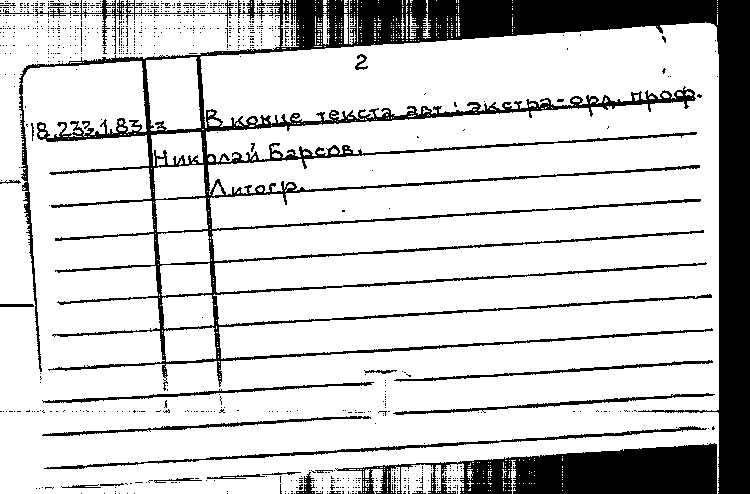 2
18.233.1.83-з В конце текста авт.: экстра-орд. проф.
Николай Барсов.
Литогр.